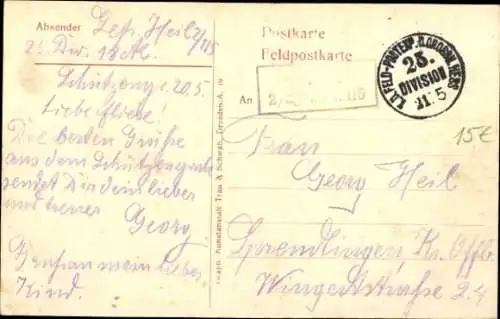 Absender
Gefr. Heil 2/115
25. Div. 18. A.K.
Schützengr. 20.5.
Liebe Liese!
Die besten Grüße
aus dem Schützengrab
sendet Dir dein lieber
und treuer
Georg
mein liebes
Kind.
Graph. Kunstanstalt Trau & Schwab, Dresden-A.
Postkarte
Feldpostkarte
An
115
K.D. FELD-POSTEXP. D. GROSSH. HESS.
25.
DIVISION
21.5
15€
Frau
Georg Heil
Sprendlingen Kr. Offb.
Wingertstraße 24